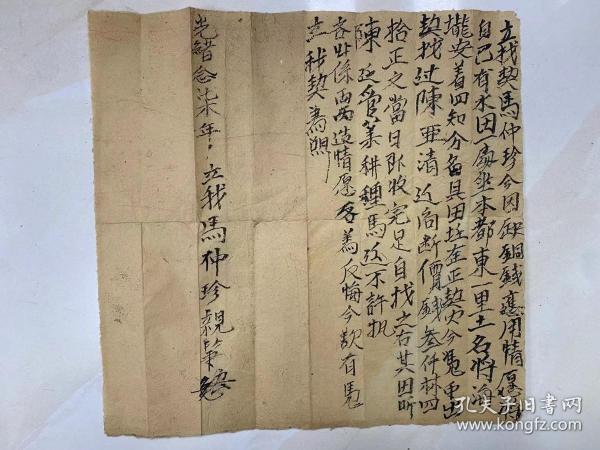 立找契馬仲珍今因缺銅錢應用情愿將
自己有水田一處坐本都東一里土名將
壠安着四知分各具田坵在正契內今憑由
契找过陳亚清边向断價錢叁仟
拾正之當日即收完足自找之右其田听
陳边管業耕種馬边不許执
吝此係两造情愿各無反悔今欲有憑
立找契為照
光緒念柒年 立找馬仲珍親筆
孔夫子旧书网
www.kongfz.com